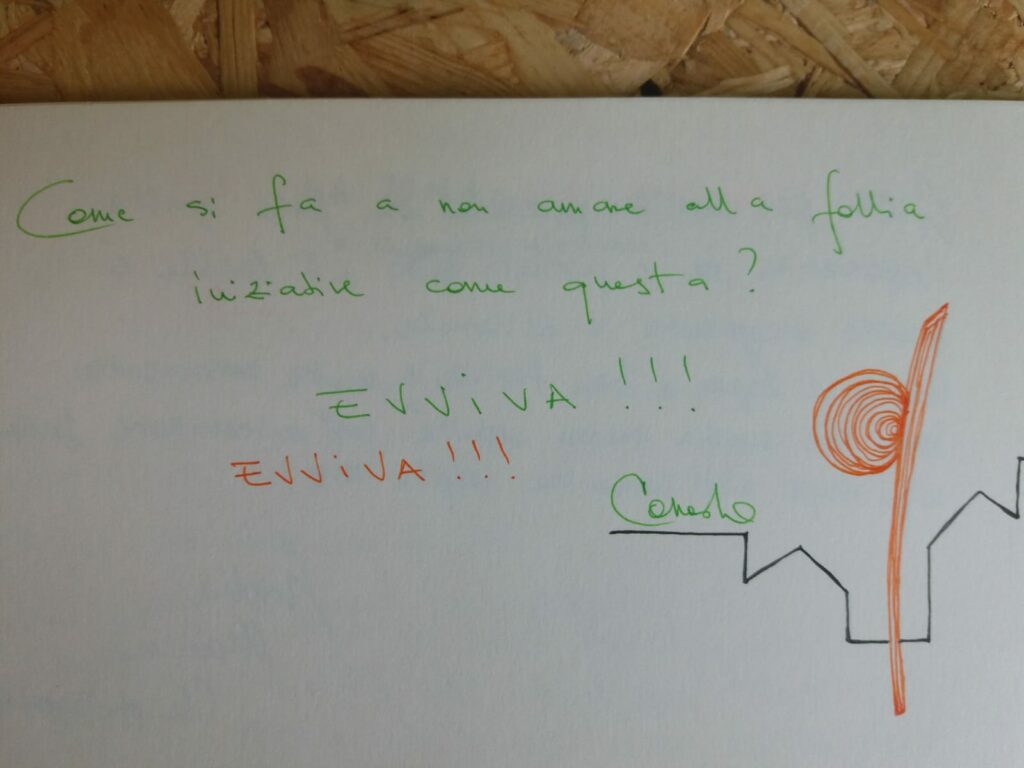 Come si fa a non amare alla follia
iniziative come questa?
EVViVA!!!
EVViVA!!!